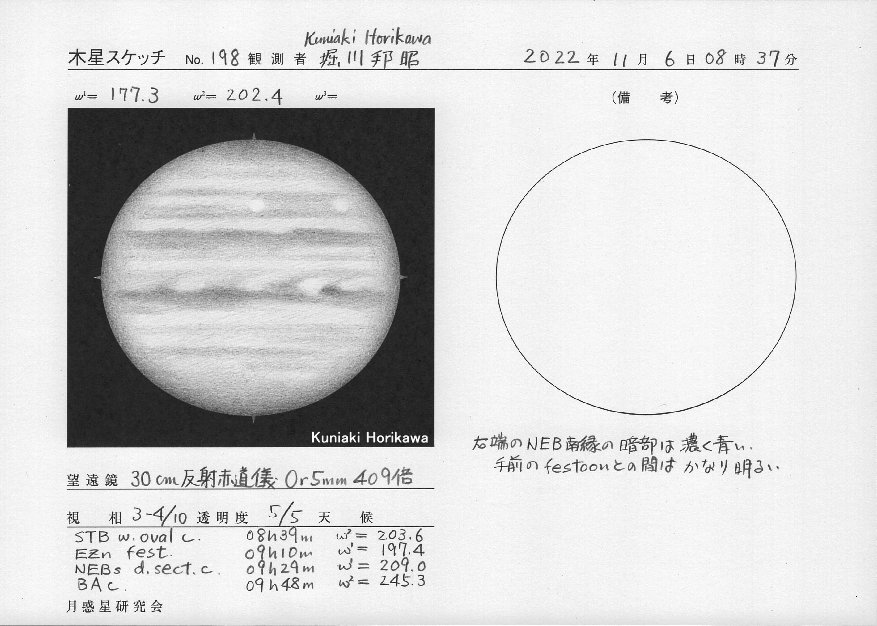 Kuniaki Horikawa
木星スケッチ No. 198 観測者 堀川邦昭 2022年 11月 6日 08時 37分
ω¹= 177.3 ω²= 202.4 ω³=
(備 考)
Kuniaki Horikawa
右端のNEB南縁の暗部は濃く青い.
手前のfestoonとの間はかなり明るい.
望遠鏡 30cm反射赤道儀 Or5mm 409倍
視 相 3-4/10 透明度 5/5 天 候
STB w.oval c. 08h39m ω²= 203.6
EZn fest. 09h10m ω¹= 197.4
NEBs d.sect.c. 09h29m ω¹= 209.0
BA c. 09h48m ω²= 245.3
月惑星研究会